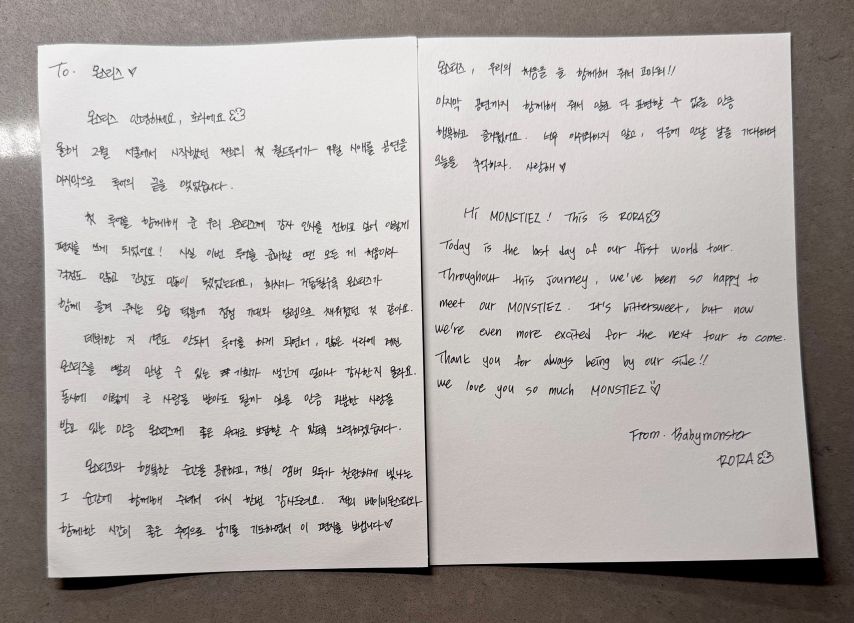 To. 몬스티즈 ♡
몬스티즈 안녕하세요, 로라에요
올해 2월 서울에서 시작했던 저희의 첫 월드투어가 9월 시애틀 공연을
마지막으로 투어의 끝을 맺었습니다.
첫 투어를 함께해 준 우리 몬스티즈께 감사 인사를 전하고 싶어 이렇게
편지를 쓰게 되었어요! 사실 이번 투어를 준비할 땐 모든 게 처음이라
걱정도 많고 긴장도 많이 됐었는데요, 회차가 거듭될수록 몬스티즈가
함께 즐겨 주시는 모습 덕분에 점점 기대와 설렘으로 채워졌던 것 같아요.
데뷔한 지 1년도 안돼서 투어를 하게 되면서, 많은 나라에 계신
몬스티즈를 빨리 만날 수 있는 기회가 생긴게 얼마나 감사한지 몰라요.
동시에 이렇게 큰 사랑을 받아도 될까 싶을 만큼 과분한 사랑을
받고 있는 만큼 몬스티즈께 좋은 무대로 보답할 수 있도록 노력하겠습니다.
몬스티즈와 행복한 순간을 공유하고, 저희 멤버 모두가 찬란하게 빛나는
그 순간에 함께해 주셔서 다시 한번 감사드려요. 저희 베이비몬스터와
함께한 시간이 좋은 추억으로 남기를 기도하면서 이 편지를 보냅니다♡
몬스티즈, 우리의 처음을 늘 함께해 줘서 고마워!!
마지막 공연까지 함께해 줘서 말로 다 표현할 수 없을 만큼
행복하고 즐거웠어요. 너무 아쉬워하지 말고, 다음에 만날 날을 기대하며
오늘을 추억하자. 사랑해♡
Hi MONSTIEZ! This is RORA
Today is the last day of our first world tour.
Throughout this journey, we've been so happy to
meet our MONSTIEZ. It's bittersweet, but now
we're even more excited for the next tour to come.
Thank you for always being by our side!!
We love you so much MONSTIEZ♡
From. Babymonster
RORA